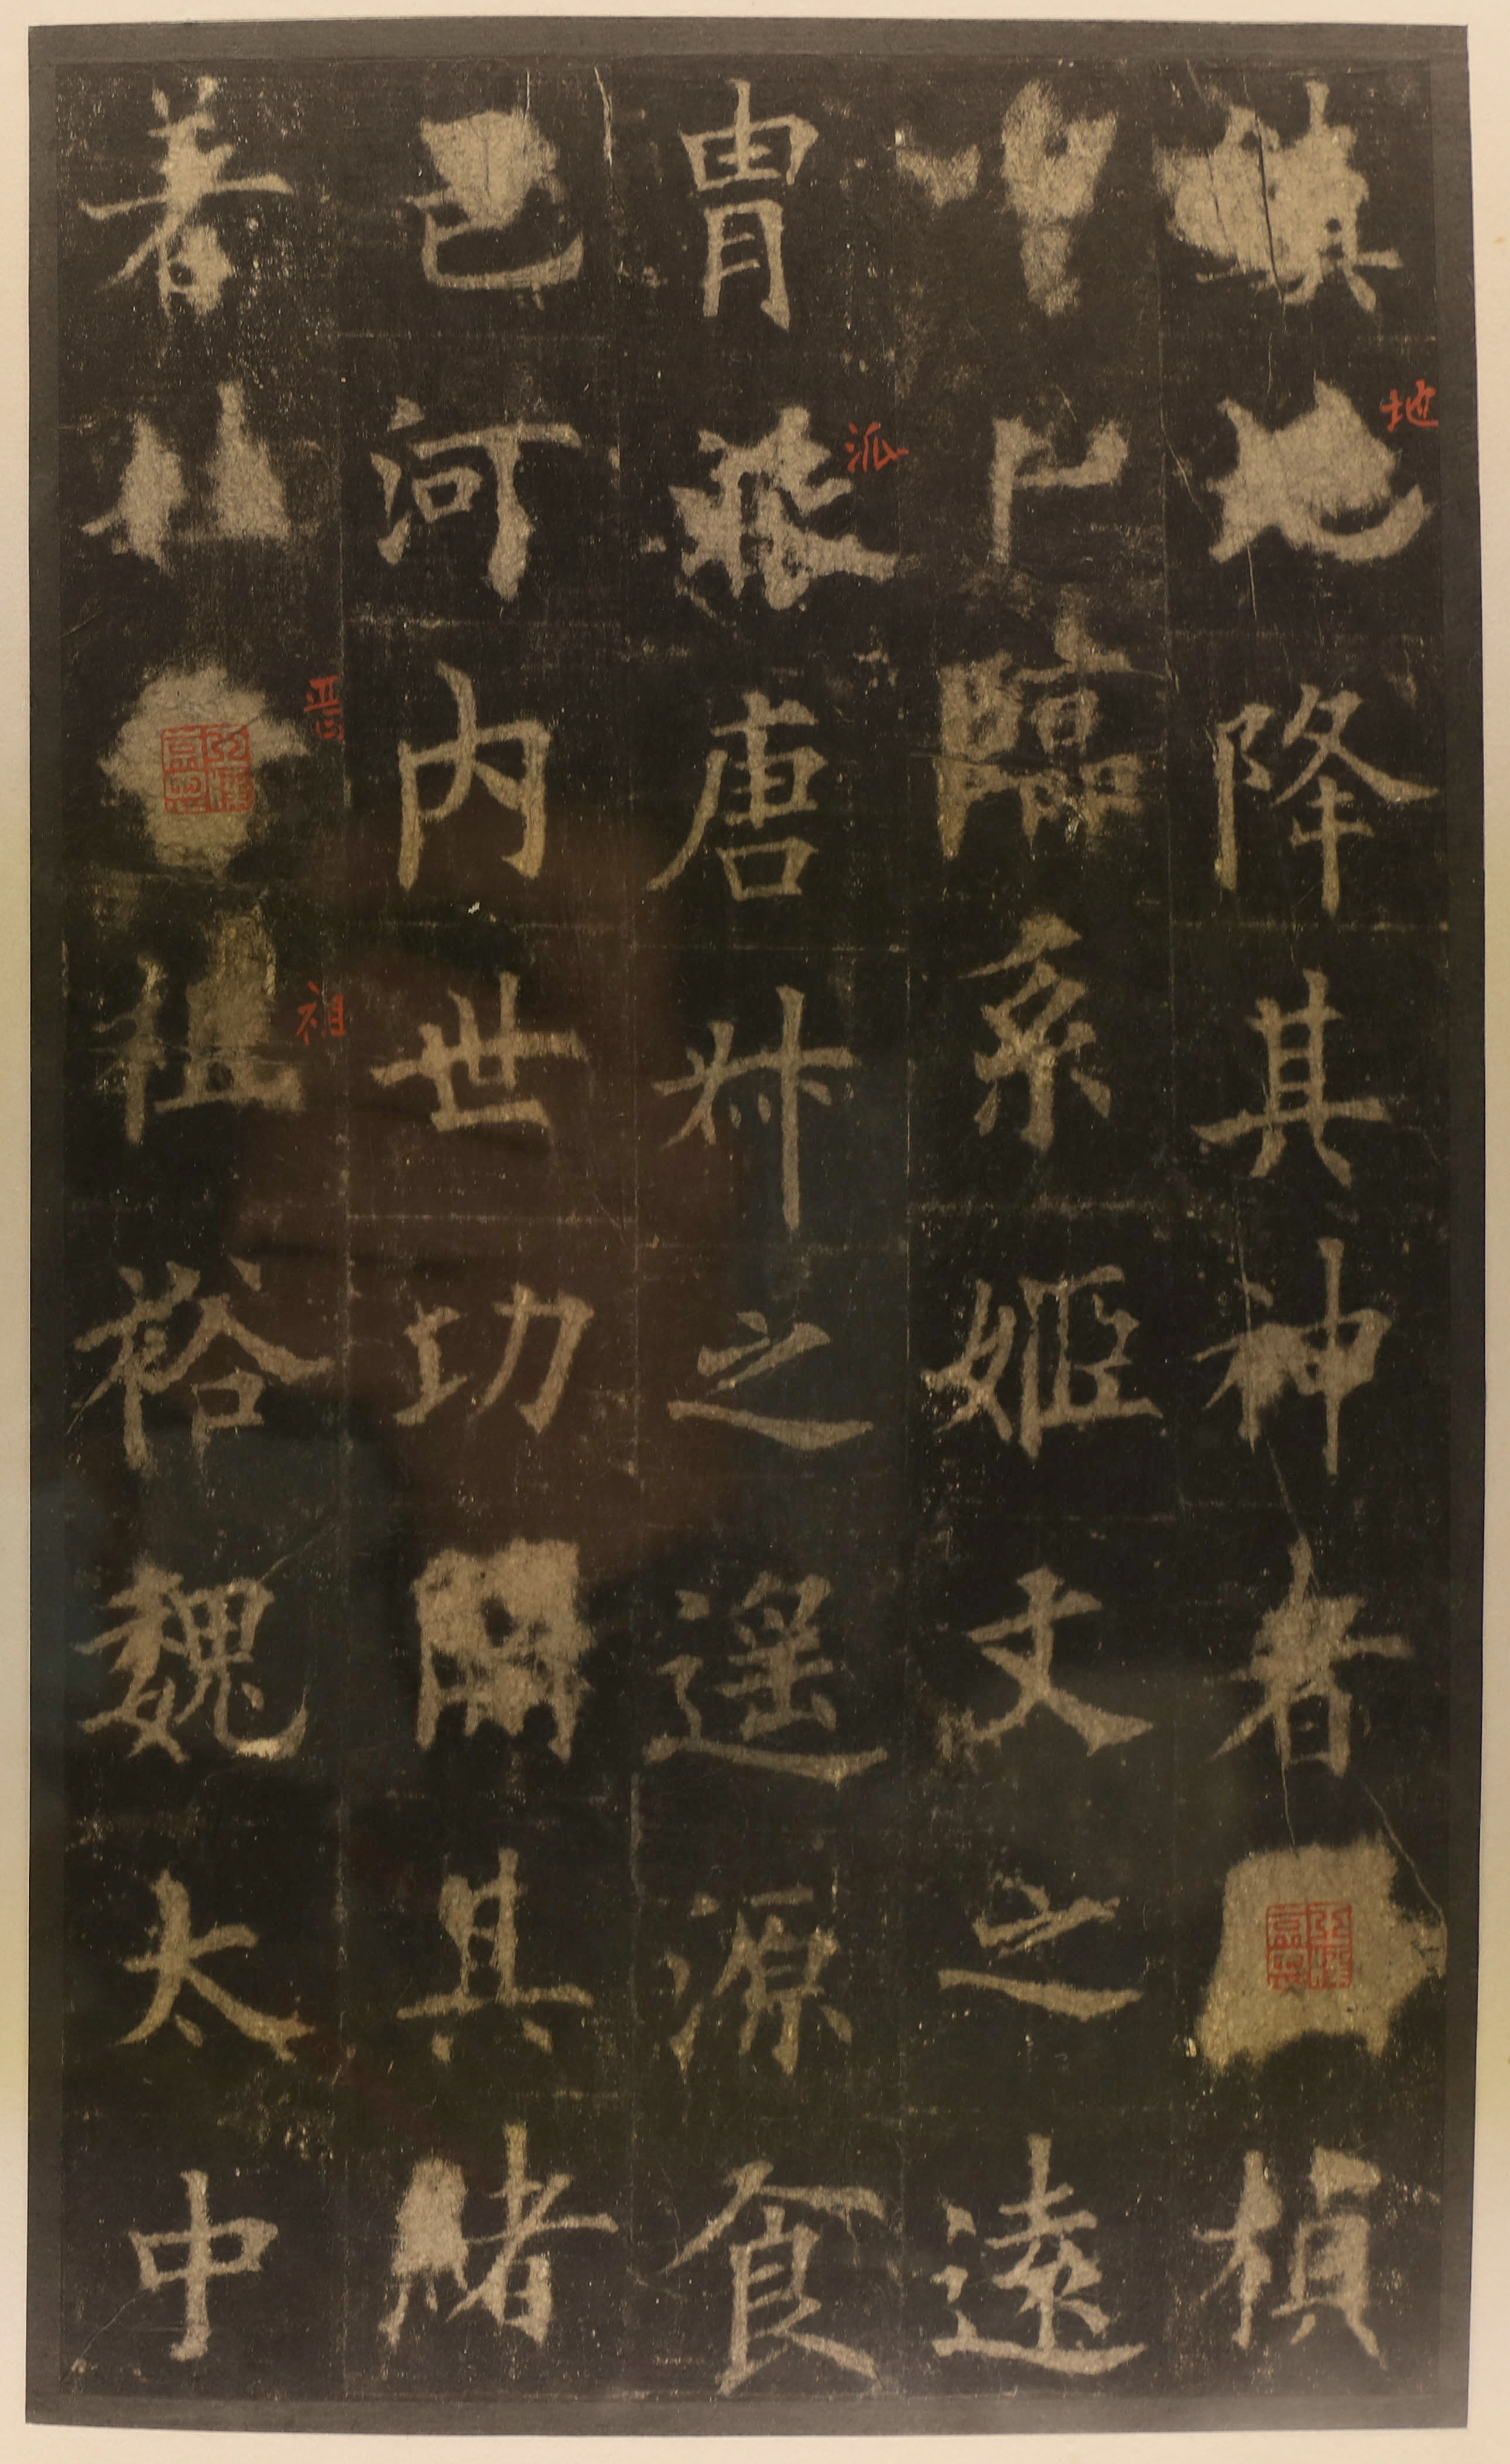 地降其神者楨
臨系姬文之遠
胄派唐叔之遥源食
邑河内世功開其緒
著晋祖裕魏太中
地
派
晋
祖